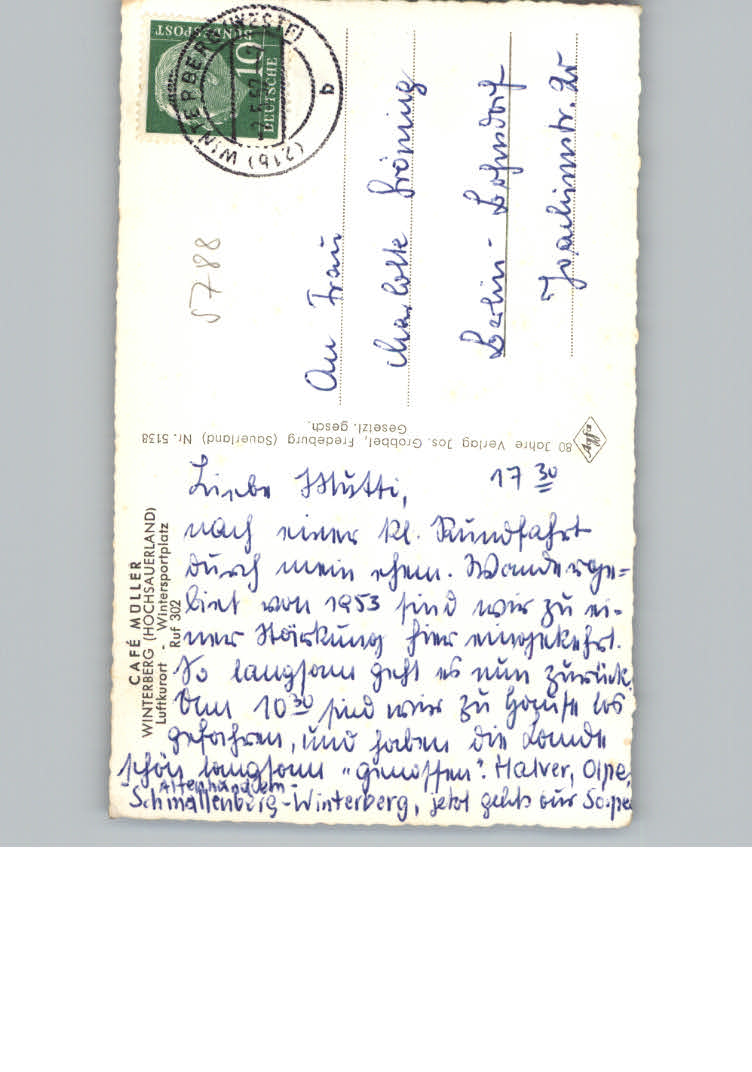 CAFÉ MÜLLER
WINTERBERG (HOCHSAUERLAND)
Luftkurort - Wintersportplatz
Ruf 302
Liebe Mutti, 17 30
nach einer kl. Rundfahrt
durch mein ehem. Wanderge=
biet von 1953 sind wir zu ei-
ner Stärkung hier eingekehrt.
So langsam geht es nun zurück.
Um 10 30 sind wir zu Hause los
gefahren, und haben die Lande
schön langsam "genossen". Halver, Olpe,
Altenhundem-
Schmallenberg-Winterberg, jetzt gehts über Sorpe
80 Jahre Verlag Jos. Grobbel, Fredeburg (Sauerland) Nr. 5138
Gesetzl. gesch.
Agfa
An Frau
Charlotte Gröning
Berlin-Bohnsdorf
Joachimstr.
5788
DEUTSCHE
BUNDESPOST
10
(21b) WINTERBERG (WESTF)
a